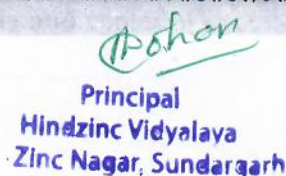 Principal
Hindzinc Vidyalaya
Zinc Nagar, Sundargarh